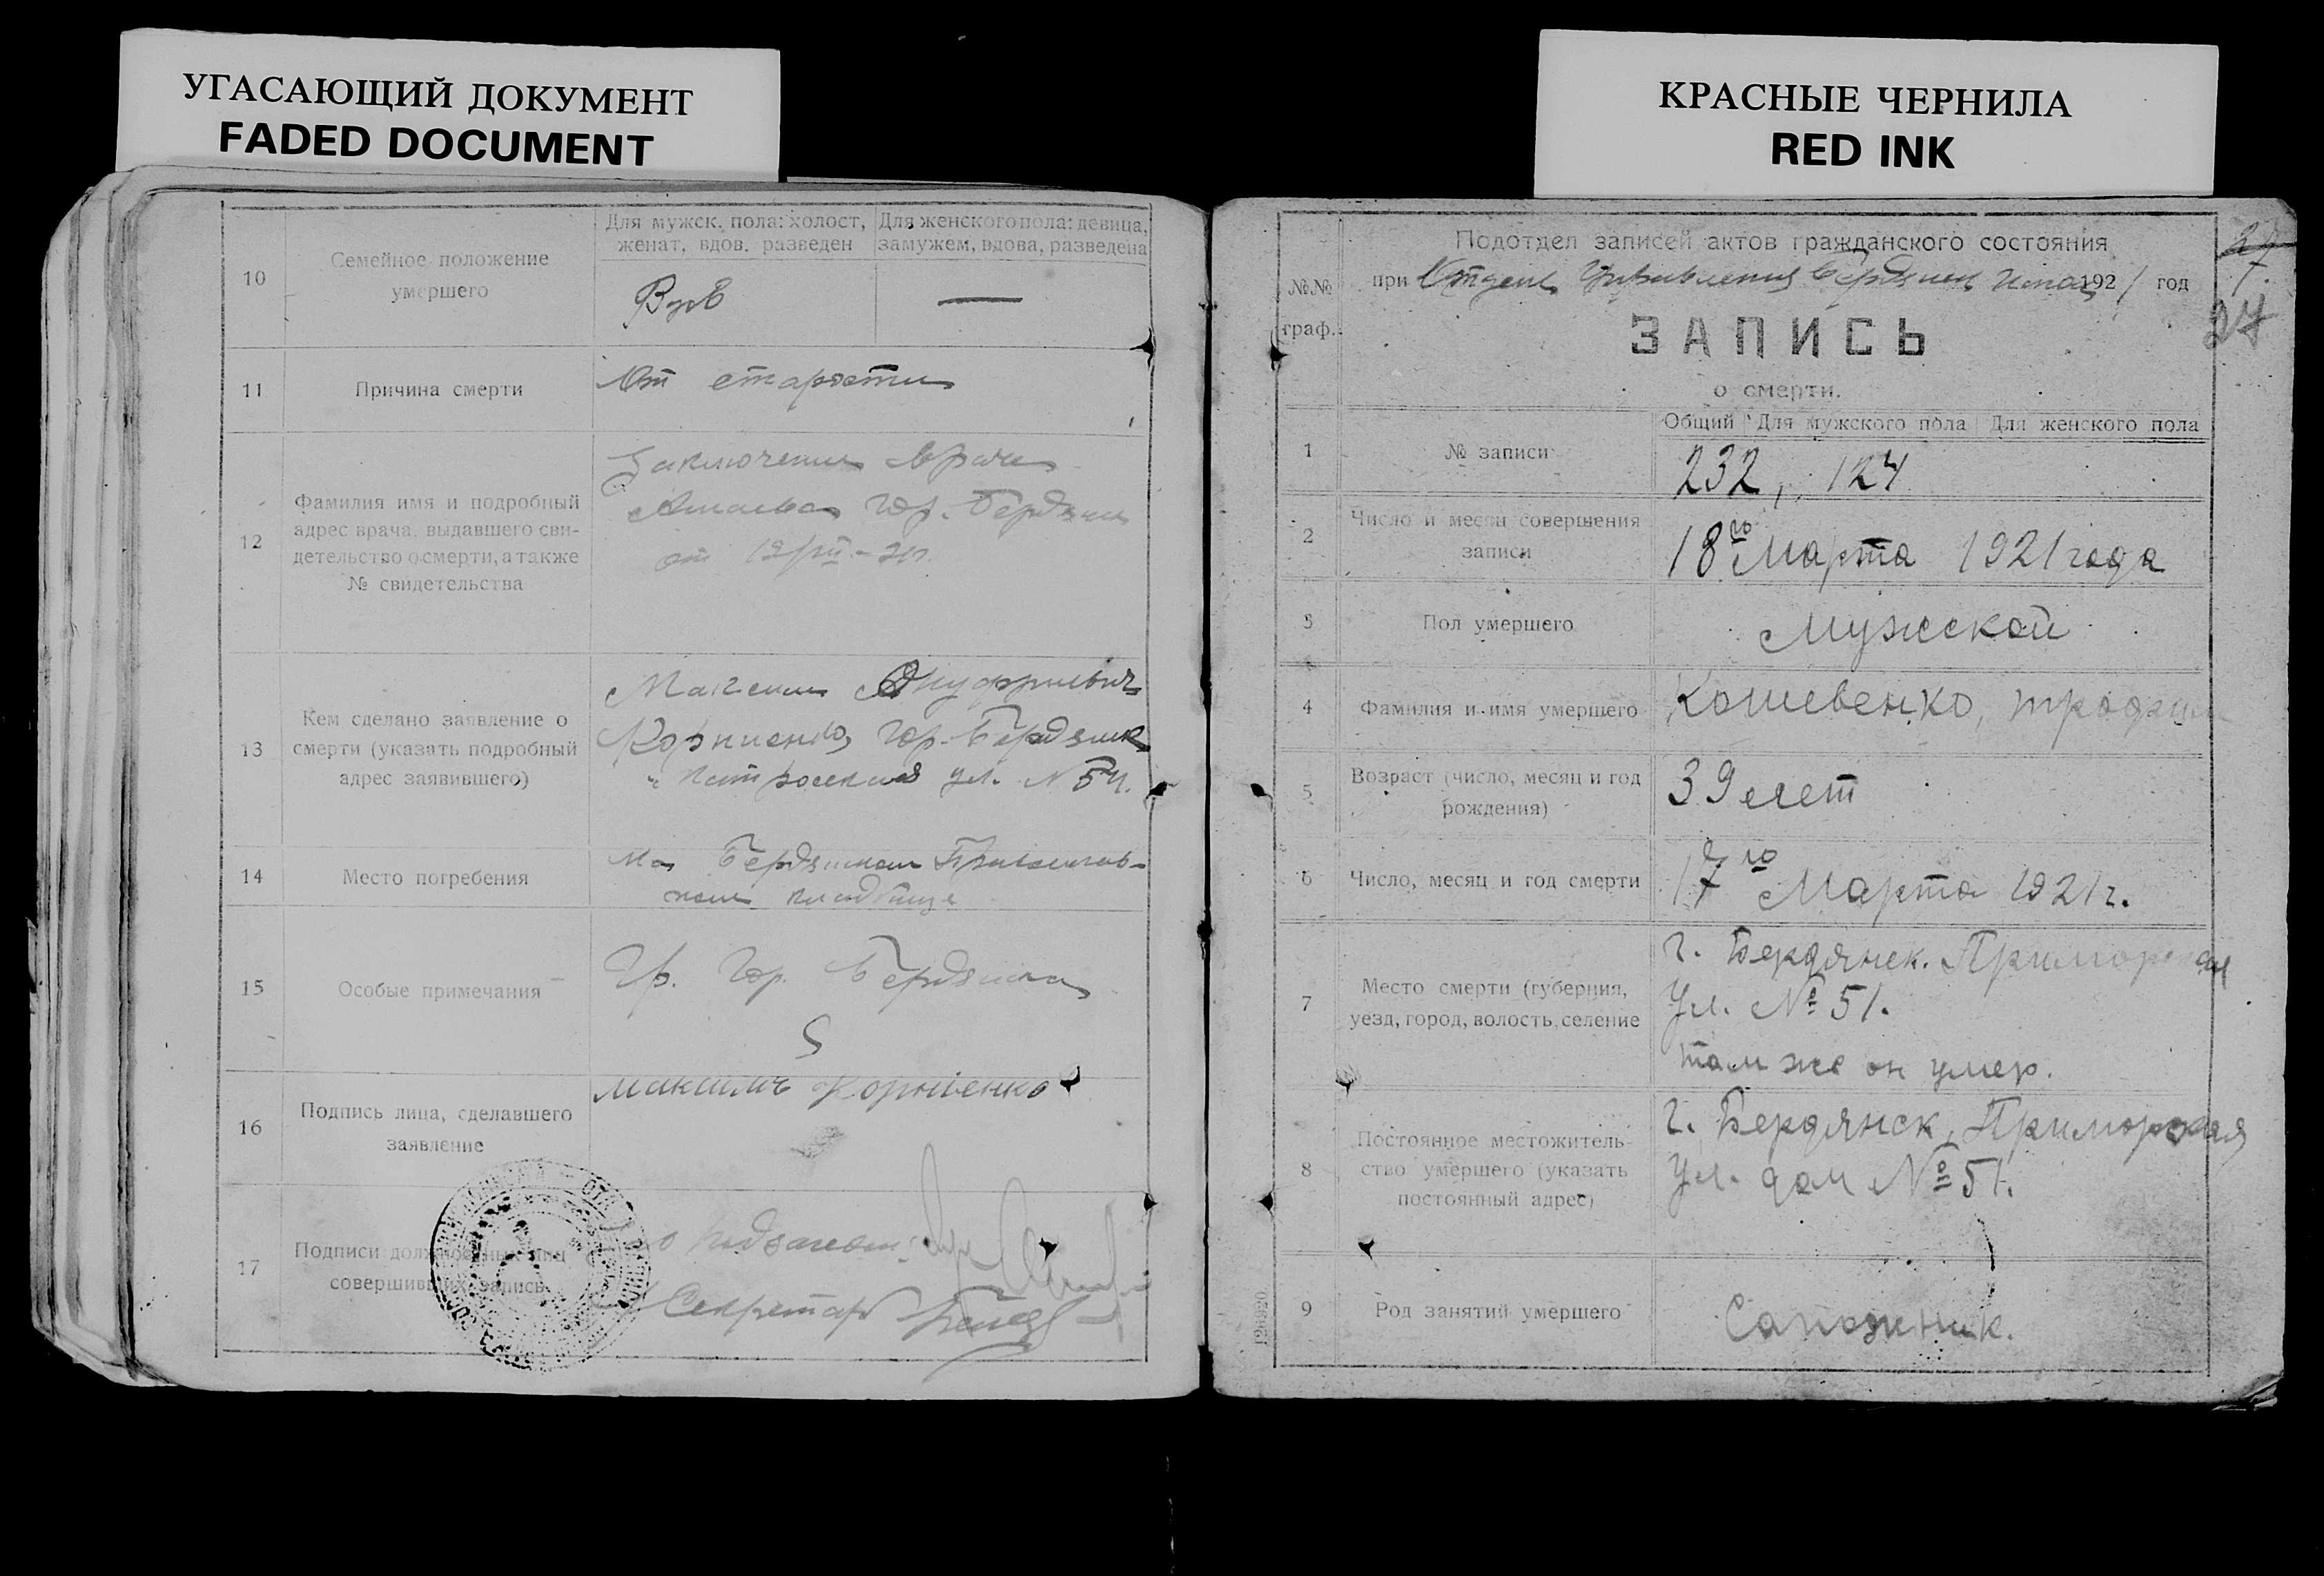 УГАСАЮЩИЙ ДОКУМЕНТ
FADED DOCUMENT
КРАСНЫЕ ЧЕРНИЛА
RED INK
10
Семейное положение
умершего
Для мужск. пола: холост,
женат, вдов. разведен
Для женского пола: девица,
замужем, вдова, разведена
Вдов
—
11
Причина смерти
От старости
12
Фамилия имя и подробный
адрес врача, выдавшего сви-
детельство о смерти, а также
№ свидетельства
Заключение врача
гор. Бердянск
от
13
Кем сделано заявление о
смерти (указать подробный
адрес заявившего)
Максим Ануфриевич
Корниенко, гор. Бердянск
ул. № 54.
14
Место погребения
На Бердянском Православ-
ном кладбище
15
Особые примечания
Гр. гор. Бердянска
16
Подпись лица, сделавшего
заявление
Максимъ Корніенко
17
Подписи должностных лиц
совершивших запись
Секретарь
№№
граф.
Подотдел записей актов гражданского состояния
при Отделе Управления Бердянск 1921 год
27
ЗАПИСЬ
о смерти.
1
№ записи
Общий Для мужского пола Для женского пола
232, 124
2
Число и месяц совершения
записи
18го Марта 1921 года
3
Пол умершего
Мужской
4
Фамилия и имя умершего
Кошевенко, Трофим
5
Возраст (число, месяц и год
рождения)
39 лет
6
Число, месяц и год смерти
17го Марта 1921 г.
7
Место смерти (губерния,
уезд, город, волость, селение
г. Бердянск. Приморская
Ул. № 51.
там же он умер.
8
Постоянное местожитель-
ство умершего (указать
постоянный адрес)
г. Бердянск, Приморская
Ул. дом № 51.
9
Род занятий умершего
Сапожник.